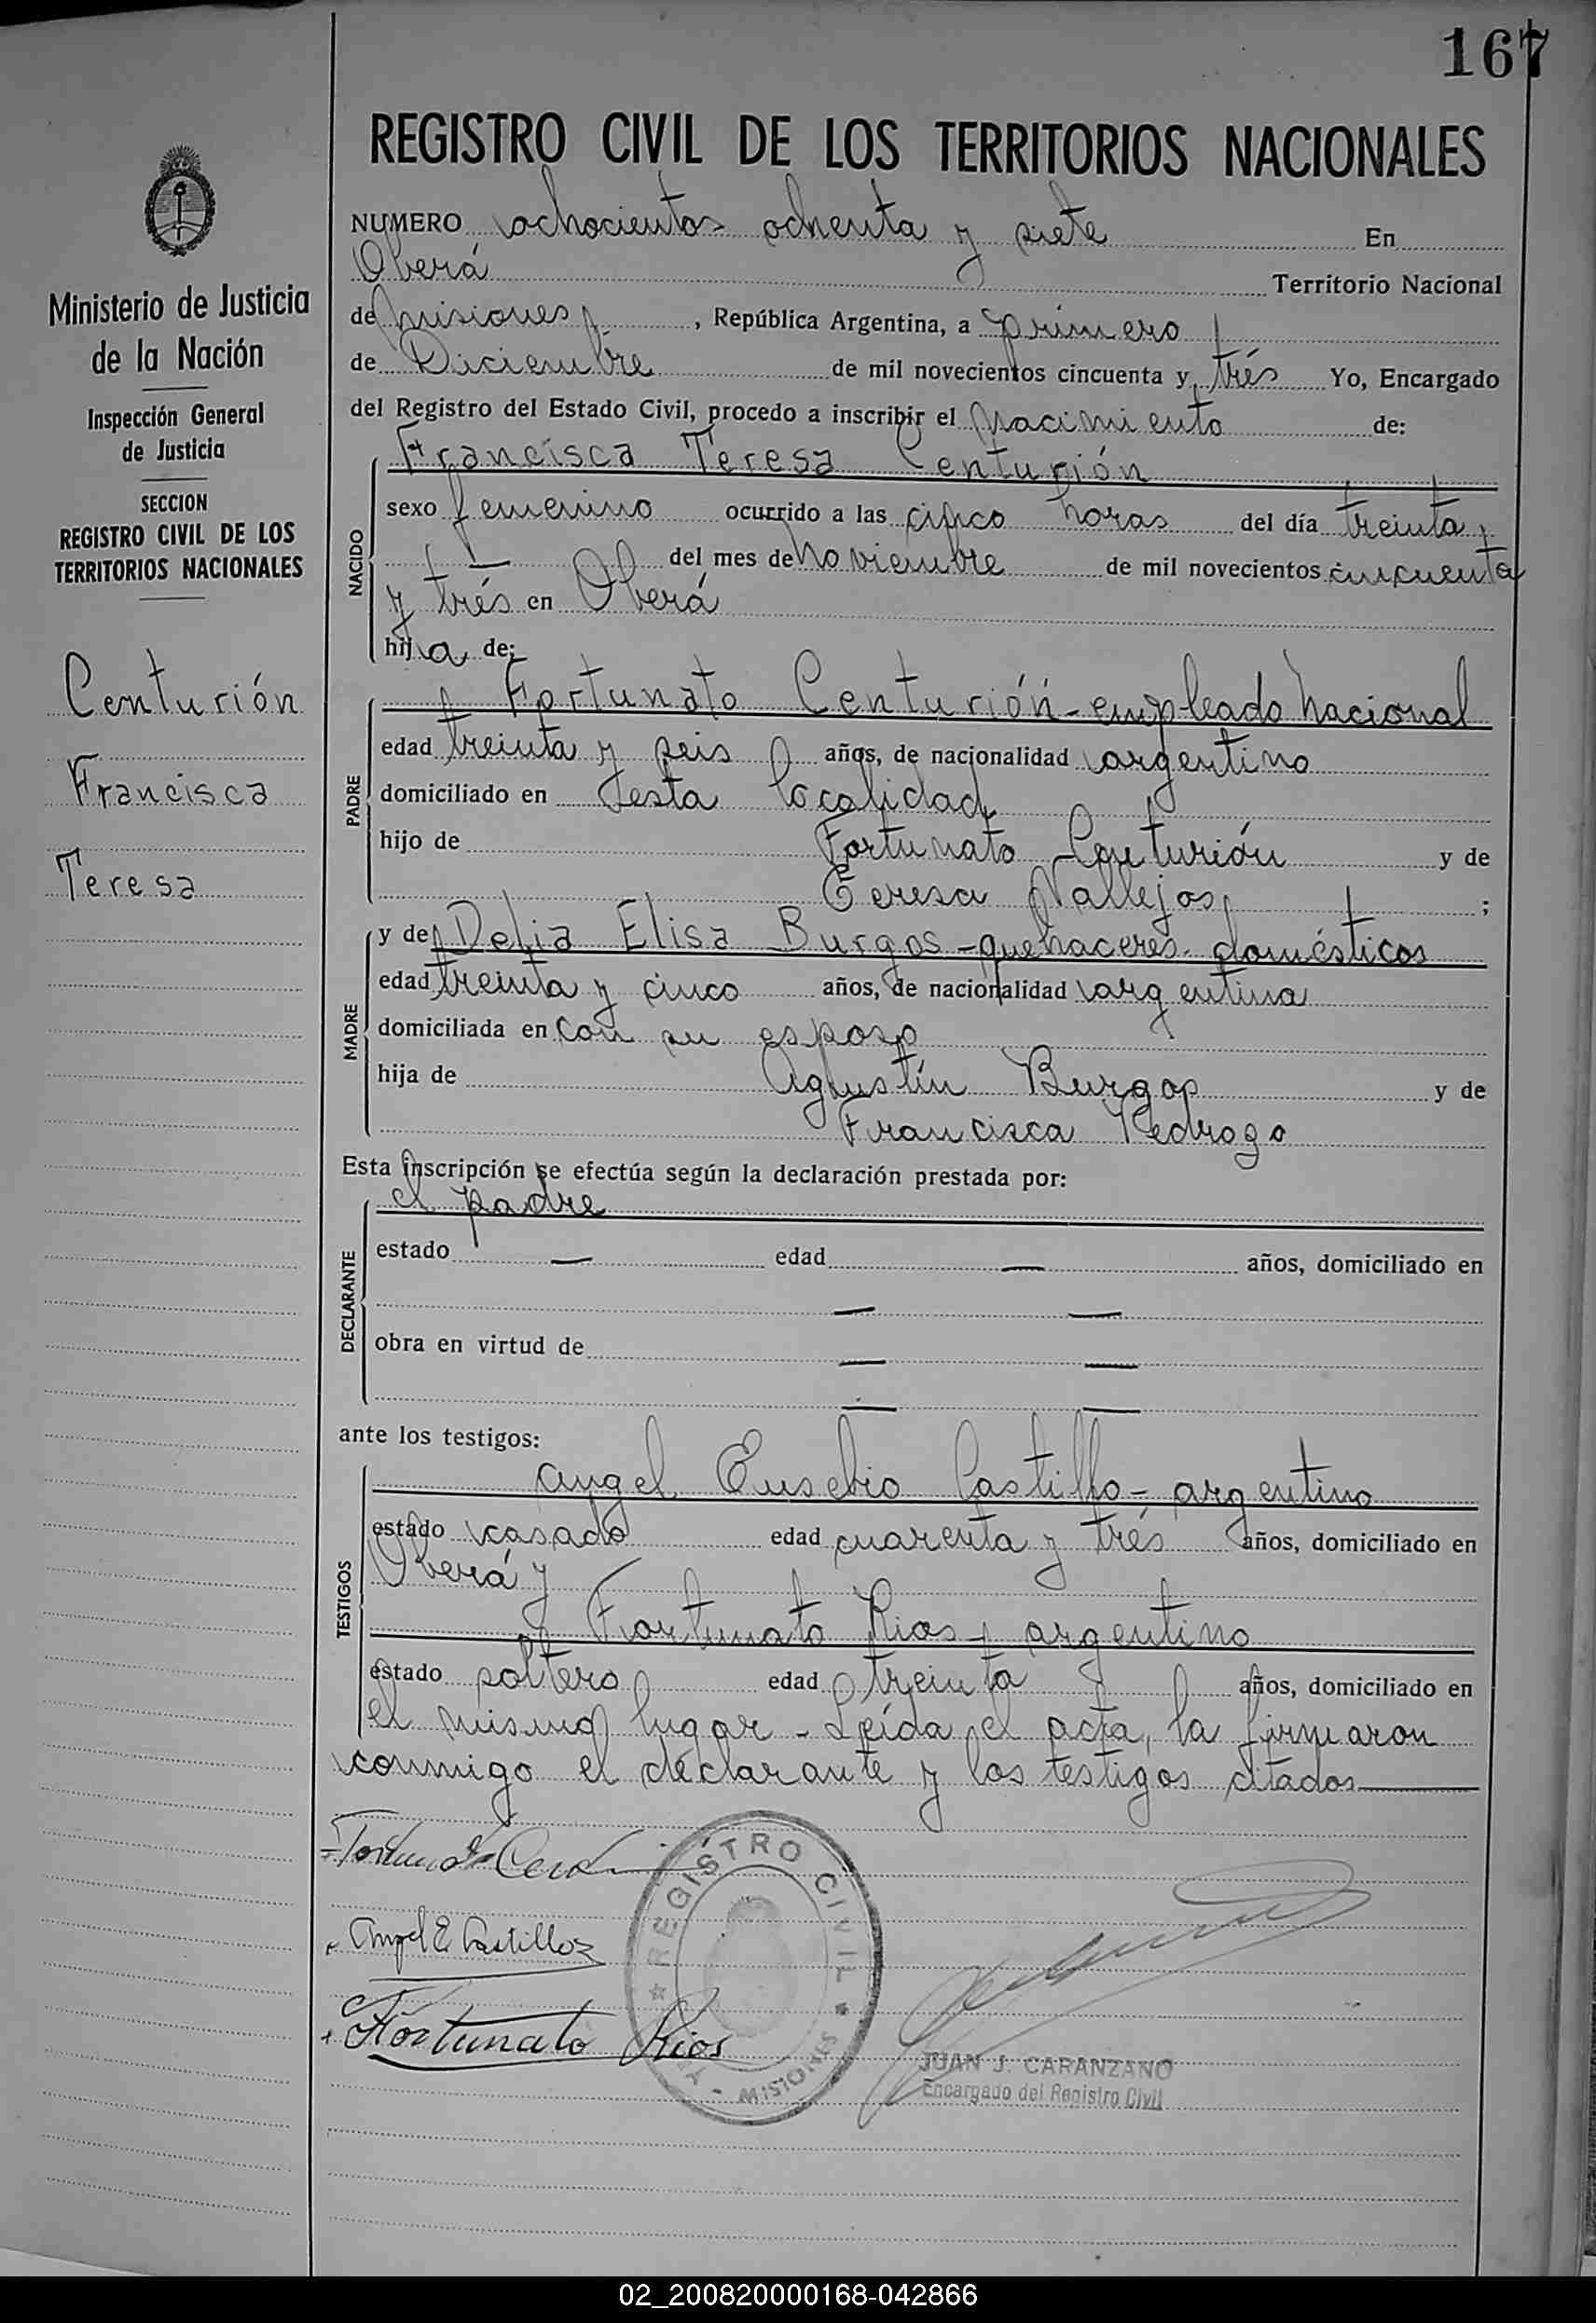 167
REGISTRO CIVIL DE LOS TERRITORIOS NACIONALES
Ministerio de Justicia
de la Nación
Inspección General
de Justicia
SECCION
REGISTRO CIVIL DE LOS
TERRITORIOS NACIONALES
Centurión
Francisca
Teresa
NUMERO ochocientos ochenta y siete En
Oberá Territorio Nacional
de Misiones, República Argentina, a primero
de Diciembre de mil novecientos cincuenta y trés Yo, Encargado
del Registro del Estado Civil, procedo a inscribir el Nacimiento de:
NACIDO
Francisca Teresa Centurión
sexo femenino ocurrido a las cinco horas del día treinta
— del mes de Noviembre de mil novecientos cincuenta
y trés en Oberá
hija de:
PADRE
Fortunato Centurión - empleado nacional
edad treinta y seis años, de nacionalidad argentino
domiciliado en esta localidad
hijo de Fortunato Centurión y de
Teresa Vallejos ;
MADRE
y de Delia Elisa Burgos - quehaceres domésticos
edad treinta y cinco años, de nacionalidad argentina
domiciliada en con su esposo
hija de Agustín Burgos y de
Francisca Pedrozo
Esta inscripción se efectúa según la declaración prestada por:
DECLARANTE
el padre
estado — edad — años, domiciliado en
— —
obra en virtud de — —
— —
ante los testigos:
TESTIGOS
Angel Eusebio Castillo - argentino
estado casado edad cuarenta y trés años, domiciliado en
Oberá y
Fortunato Rios, argentino
estado soltero edad treinta años, domiciliado en
el mismo lugar - Leída el acta, la firmaron
conmigo el declarante y los testigos citados
Angel E Castillo
Fortunato Rios
REGISTRO CIVIL
MISIONES
JUAN J. CARANZANO
Encargado del Registro Civil
02_200820000168-042866